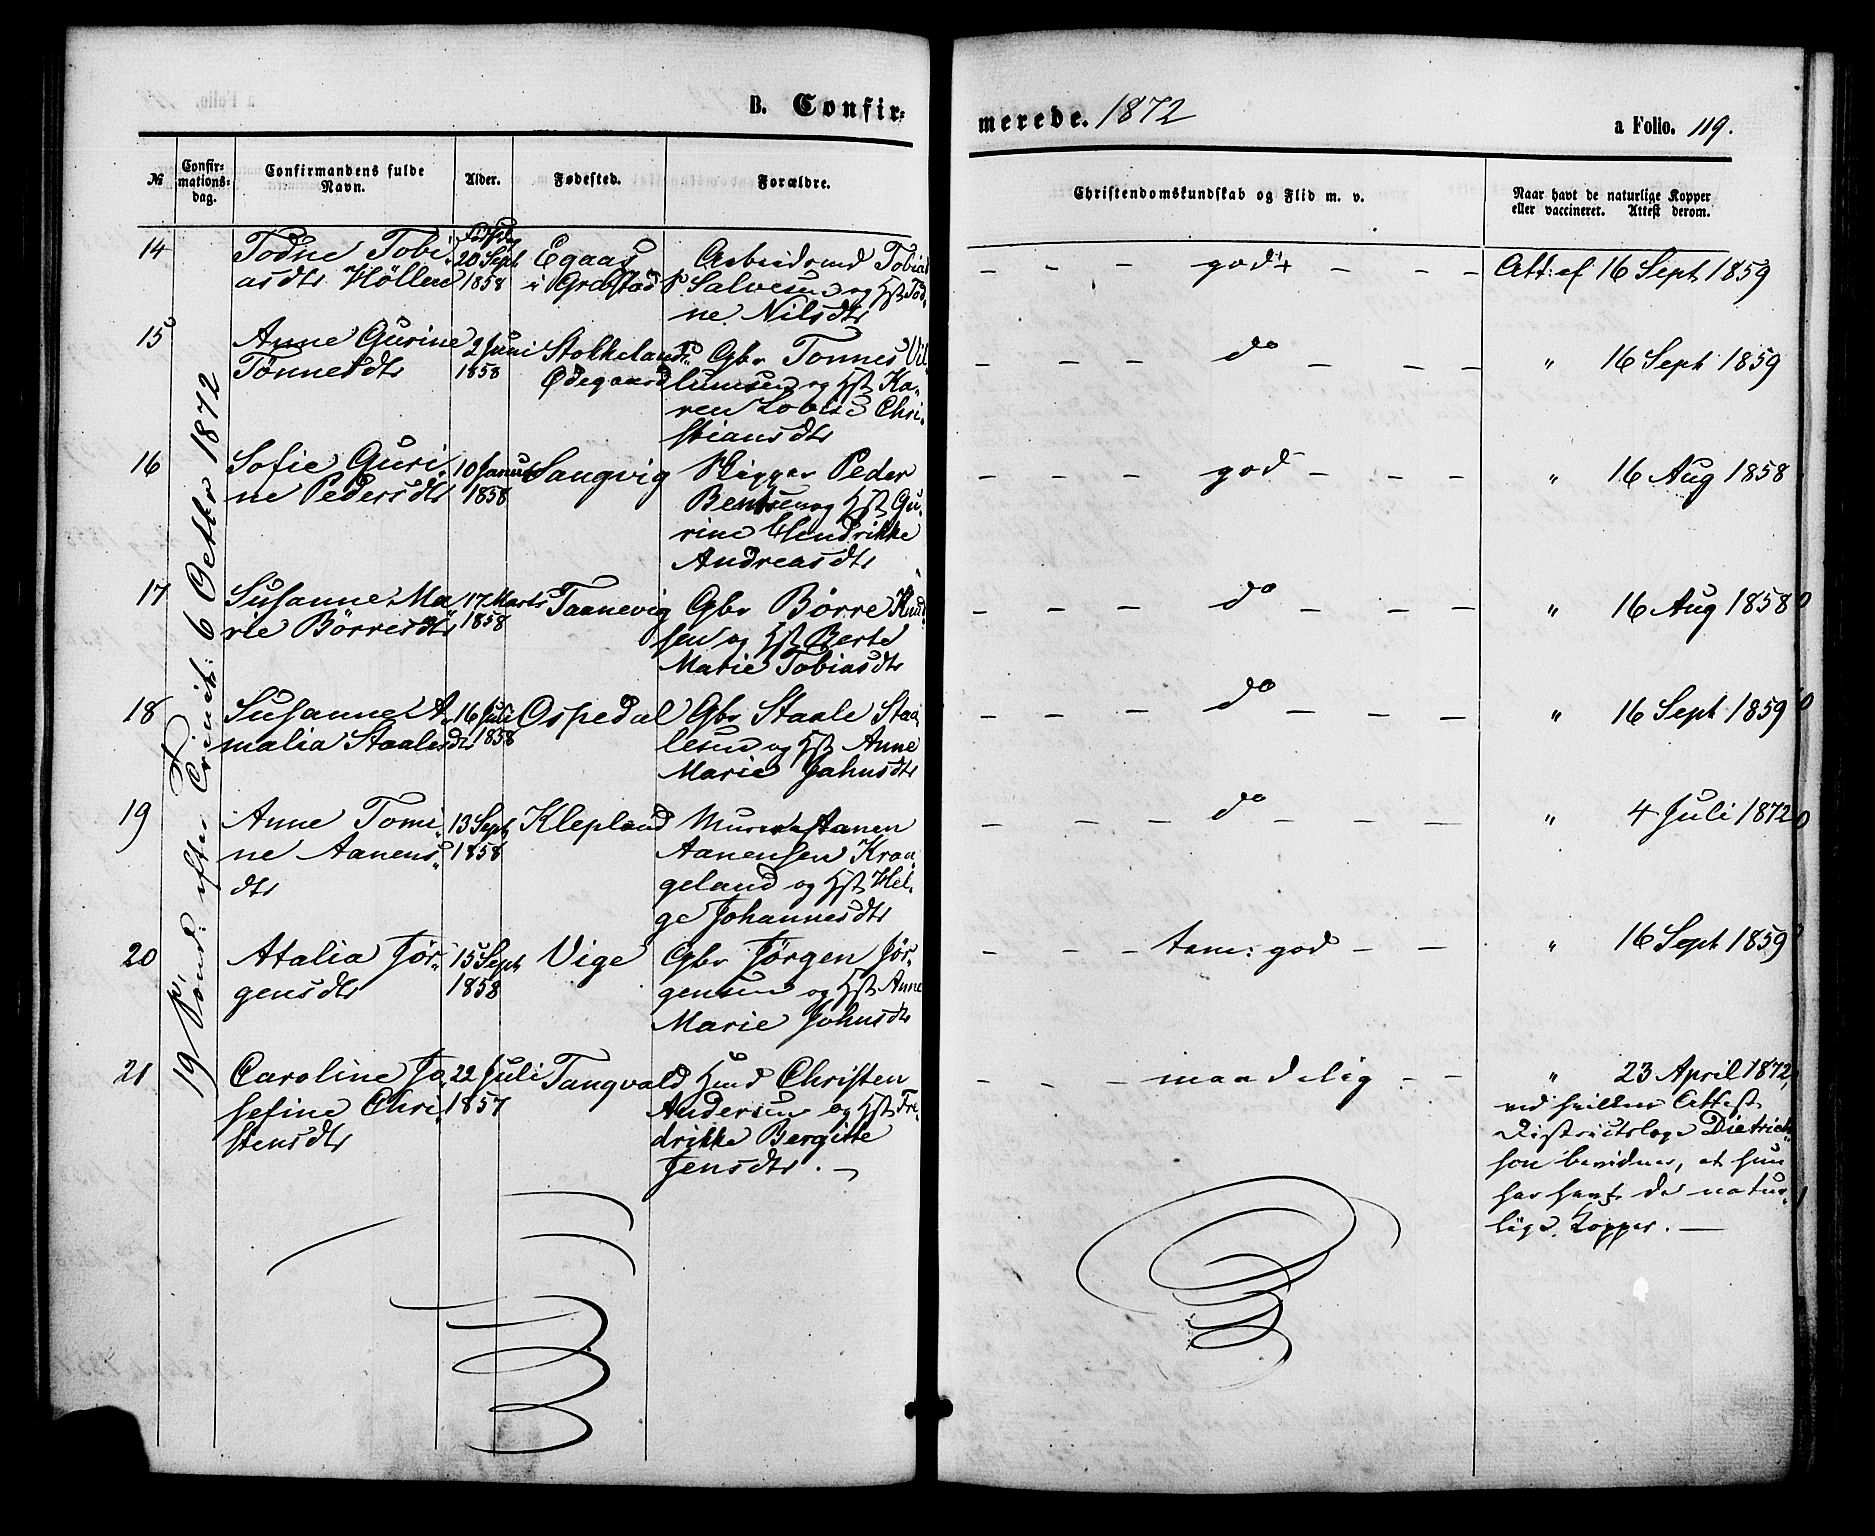 B. Confir-
merede. 1872
a Folio. 119.
№
Confir-
mations-
dag.
Confirmandens fulde
Navn.
Alder.
Fødested.
Forældre.
Christendomskundskab og Flid m. v.
Naar havt de naturlige Kopper
eller vaccineret. Attest derom.
19 Sønd: efter Trinit: 6 Octbr 1872
14
Todne Tobi-
asdtr Höllen
20 Sept
1858
Egaas
i Grebstad
Arbeidsmd Tobias
Salvesen og Hst Tod-
ne Nilsdtr
god +
Att: af 16 Sept 1859
15
Anne Gurine
Tönnesdtr
2 Juni
1858
Stokkeland
Ødegaard
Gbr Tönnes Vil-
lumsen og Hst Ka-
ren Lovise Chri-
stiansdtr
do
" 16 Sept 1859
16
Sofie Guri-
ne Pedersdtr
10 Januar
1858
Sangvig
Skipper Peder
Bentsen og Hst Gu-
rine Hendrikke
Andreasdtr
god
" 16 Aug 1858
17
Susanne Ma-
rie Börresdtr
17 Marts
1858
Taanevig
Gbr Börre Knud-
sen og Hst Berte
Marie Tobiasdtr
do
" 16 Aug 1858
18
Susanne A-
malia Staalesdtr
16 Juli
1858
Ospedal
Gbr Staale Staa-
lesen og Hst Anne
Marie Jahnsdtr
do
" 16 Sept 1859
19
Anne Tomi-
ne Aanens-
dtr
13 Sept
1858
Klepland
Aanensen Kraa-
geland og Hst Hel-
ge Johannesdtr
do
" 4 Juli 1872
20
Atalia Jör-
gensdtr
15 Sept
1858
Vige
Gbr Jörgen Jör-
gensen og Hst Anne
Marie Johnsdtr
tem: god
" 16 Sept 1859
21
Caroline Jo-
sefine Chri-
stensdtr
22 Juli
1857
Tangvald
Hmd Christen
Andersen og Hst Fre-
drikke Bergitte
Jensdtr. —
maadelig
" 23 April 1872,
ved hvilken Attest
Districtslæge Dietrich-
son bevidner, at hun
har havt de natur-
lige Kopper. —